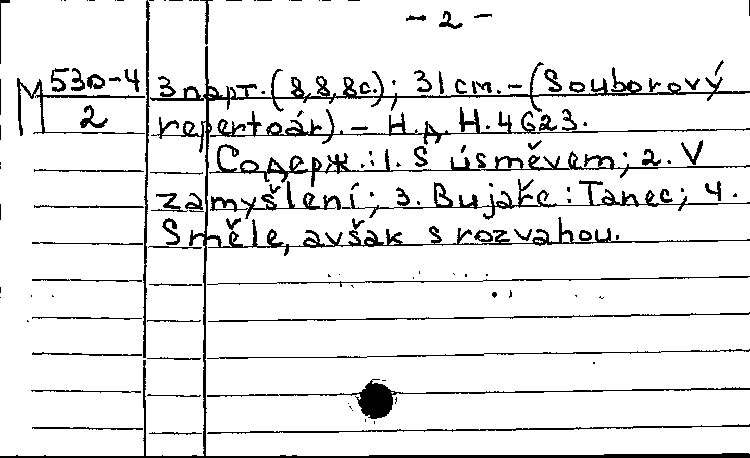 - 2 -
М 530-4
2
3 парт. (8,8,8с.); 31 см. - (Souborový
repertoár). - Н.д. Н. 4623.
Содерж.: 1. S úsměvem; 2. V
zamyšlení; 3. Bujaře: Tanec; 4.
Směle, avšak s rozvahou.